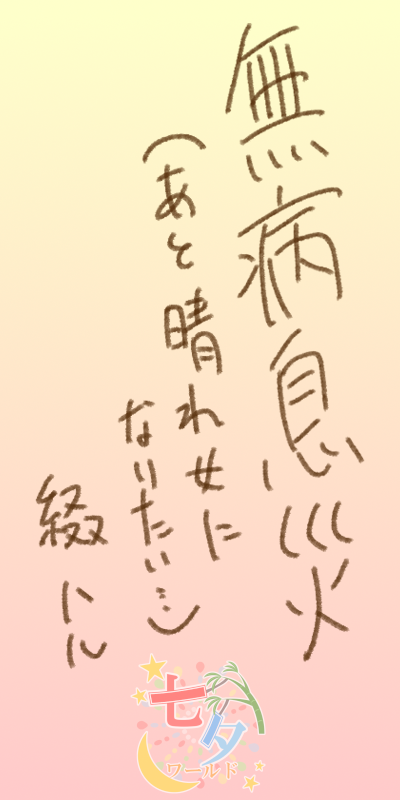 無病息災
（あと晴れ女に
なりたい…）
綴トル
七夕
ワールド